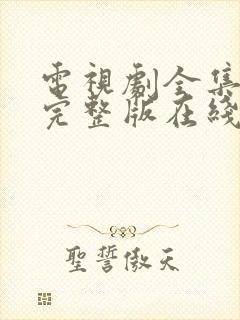 電視劇全集
完整版在綫
聖誓傲天